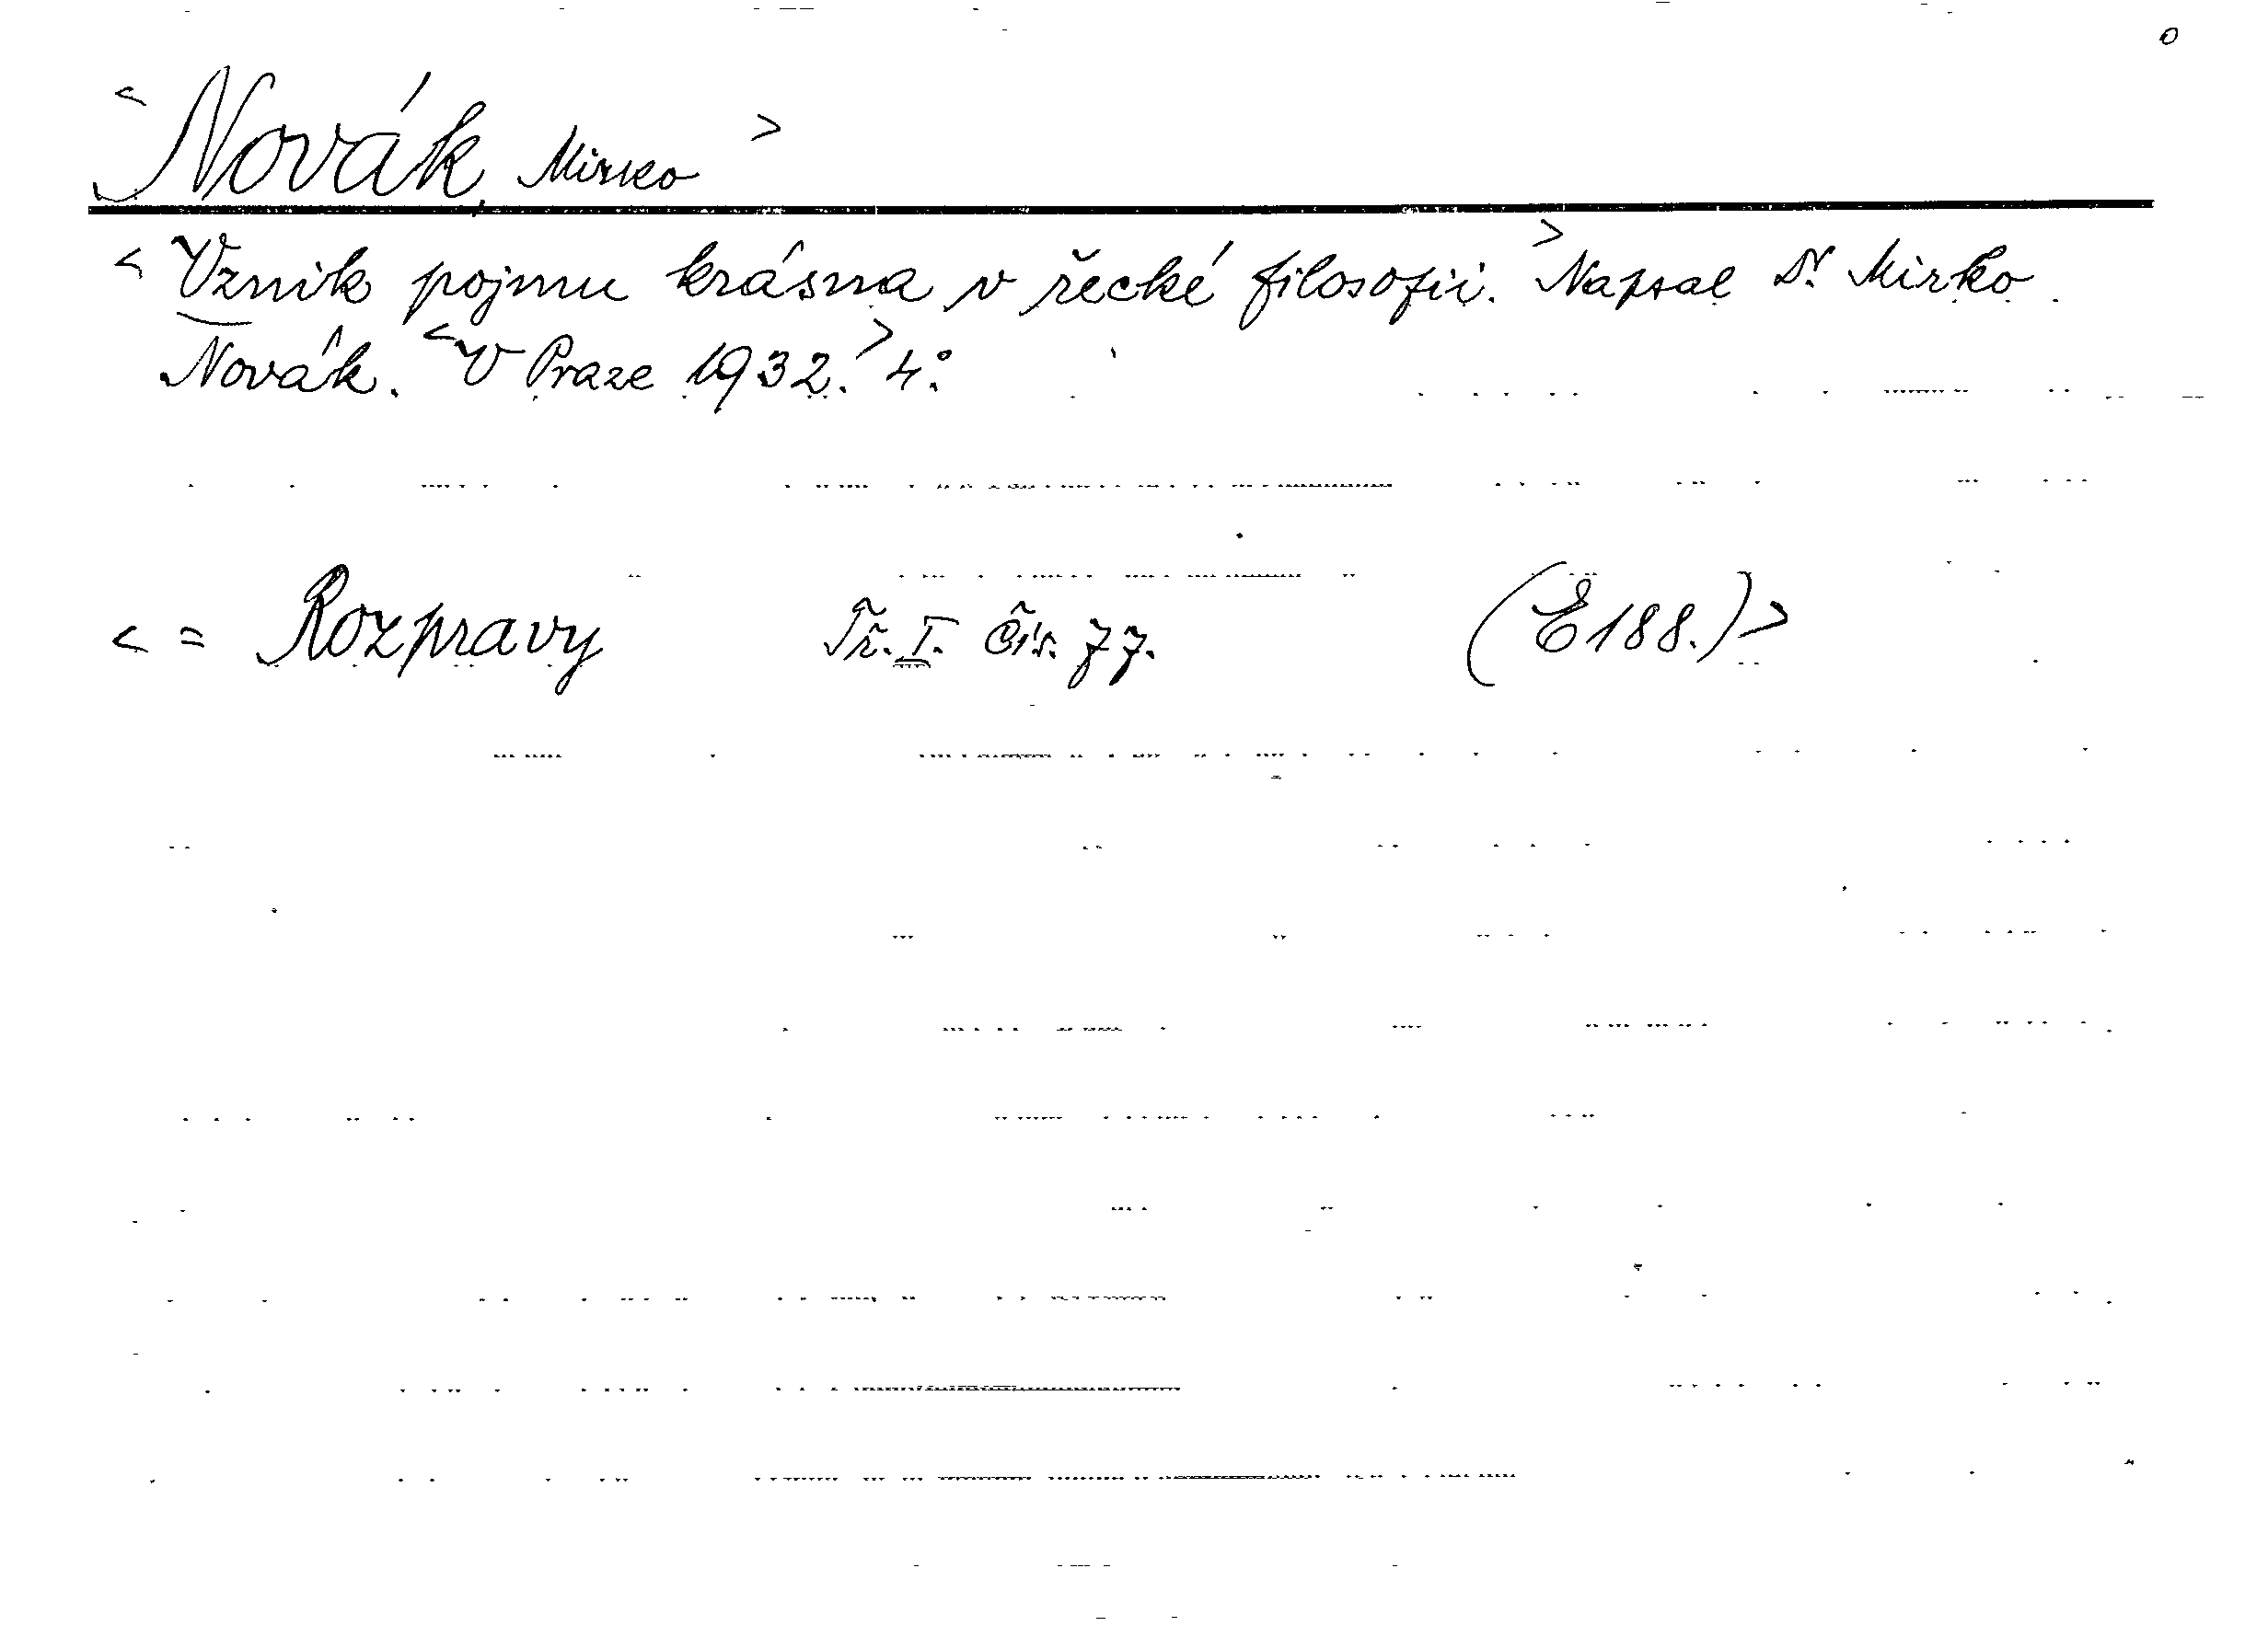 o
< Novák, Mirko >
< Vznik pojmu krásna v řecké filosofii. > Napsal Dr. Mirko
Novák. < V Praze 1932. > 4°.
< = Rozpravy Tř. I. Čís. 77. (E 188.) >